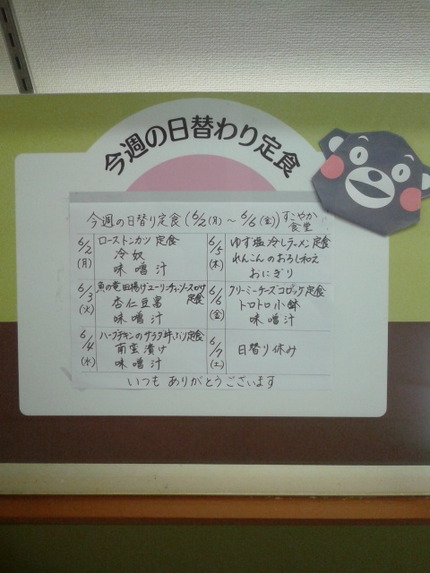 今週の日替わり定食
今週の日替り定食(6/2(月)~6/6(金))すこやか食堂
6/2(月)
ローストンカツ定食
冷奴
味噌汁
6/3(火)
魚の竜田揚げユーリンチャンソースかけ定食
杏仁豆富
味噌汁
6/4(水)
ハーブチキンのサラダ丼ぶり定食
南蛮漬け
味噌汁
6/5(木)
ゆず塩冷しラーメン定食
れんこんのおろし和え
おにぎり
6/6(金)
クリーミーチーズコロッケ定食
トロトロ小鉢
味噌汁
6/7(土)
日替り休み
いつもありがとうございます